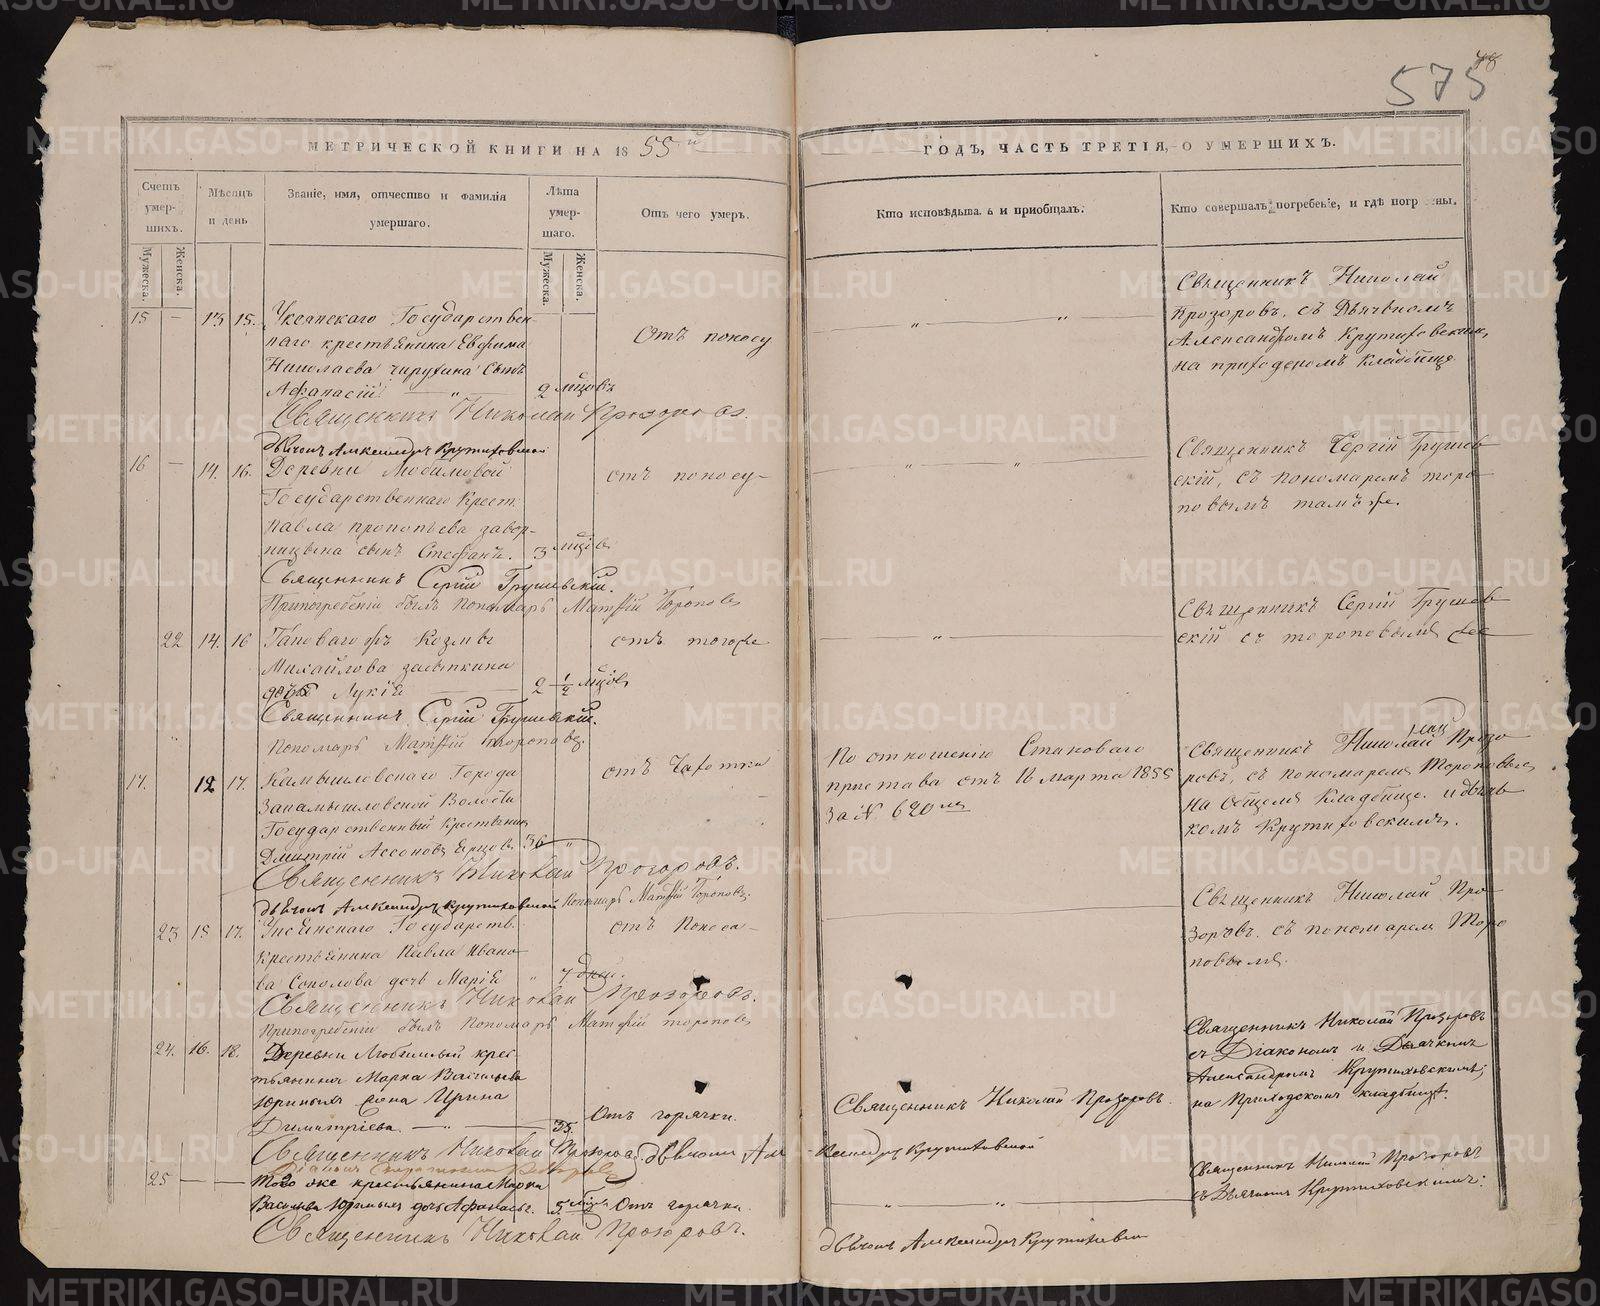 575
МЕТРИЧЕСКОЙ КНИГИ НА 1855й
ГОДЪ, ЧАСТЬ ТРЕТІЯ, О УМЕРШИХЪ.
Счетъ умер-шихъ.
Мужеска.
Женска.
Мѣсяцъ и день
Званіе, имя, отчество и фамилія умершаго.
Лѣта умер-шаго.
Мужеска.
Женска.
Отъ чего умеръ.
Кто исповѣдыва и приобщалъ.
Кто совершалъ погребеніе, и гдѣ погр ены.
15 — 13 15.
Государствен-
наго крестьянина Евфима
Николаева Чирухина сынъ
Афанасій — „ — 2 мцовъ
Отъ поносу
— „ — „ —
Священникъ Николай
Прозоровъ, съ Дьячкомъ
Александромъ Крутиховскимъ,
на приходскомъ кладбище
Священникъ Николай Прозоровъ.
Дьячокъ Александръ Крутиховской
16 — 14. 16.
Деревни Любимовой
Государственнаго Крест.
Павла Прокопьева
сынъ Стефанъ. 3 мцов
отъ поносу
— „ — „ —
Священникъ Сергій Грушев
скій, съ пономаремъ Торо
повымъ тамъ же.
Священникъ Сергій Грушевскій.
Припогребеніи былъ Пономарь Матфій Тороповъ
22 14. 16
Козмы
Михайлова
дочь Лукія — 2 1/2 мцов
отъ тогоже
— „ —
Священникъ Сергій Грушев
скій съ Тороповымъ
Священникъ Сергій Грушевскій.
Пономарь Матфій Тороповъ.
17. 12 17.
Камышловскаго Города
Закамышловской Волости
Государственный Крестьянинъ
Дмитрій 36 „
отъ Чахотки
По отношенію Становаго
пристава отъ 16 марта 1855
За № 620мъ
Священникъ Николай Прозо
ровъ, съ пономаремъ Тороповымъ
на общемъ кладбище. и дьяч
комъ Крутиховскимъ.
Священникъ Николай Прозоровъ.
Дьячокъ Александръ Крутиховской Пономарь Матфій Тороповъ.
23 15 17.
Государств.
Крестьянина Павла Ивано
ва Соколова дочь Марія „ 7 дней.
отъ Поноса —
Священникъ Николай Про
зоровъ. съ пономаремъ Торо
повымъ.
Священникъ Николай Прозоровъ.
Припогребеніи былъ Пономарь Матфій Тороповъ
24. 16. 18.
Деревни Любимовой крес-
тьянина Марка Васильева
Юриныхъ жена Ирина
Димитріева. — „ — 35.
Отъ горячки.
Священникъ Николай Прозоровъ.
Священникъ Николай Прозоровъ
съ Діакономъ и Дьячкомъ
Александромъ Крутиховскимъ,
на Приходскомъ кладбище.
Священникъ Николай Прозоровъ дьячокъ Але
ксандръ Крутиховской
25 — —
Того же крестьянина Марка
Васильева Юриныхъ дочь Афанасья. 5 Отъ горячки.
— „ — „ —
Священникъ Николай Прозоровъ
съ Дьячкомъ Крутиховскимъ.
Священникъ Николай Прозоровъ.
дьячокъ Александръ Крутиховской
METRIKI.GASO-URAL.RU